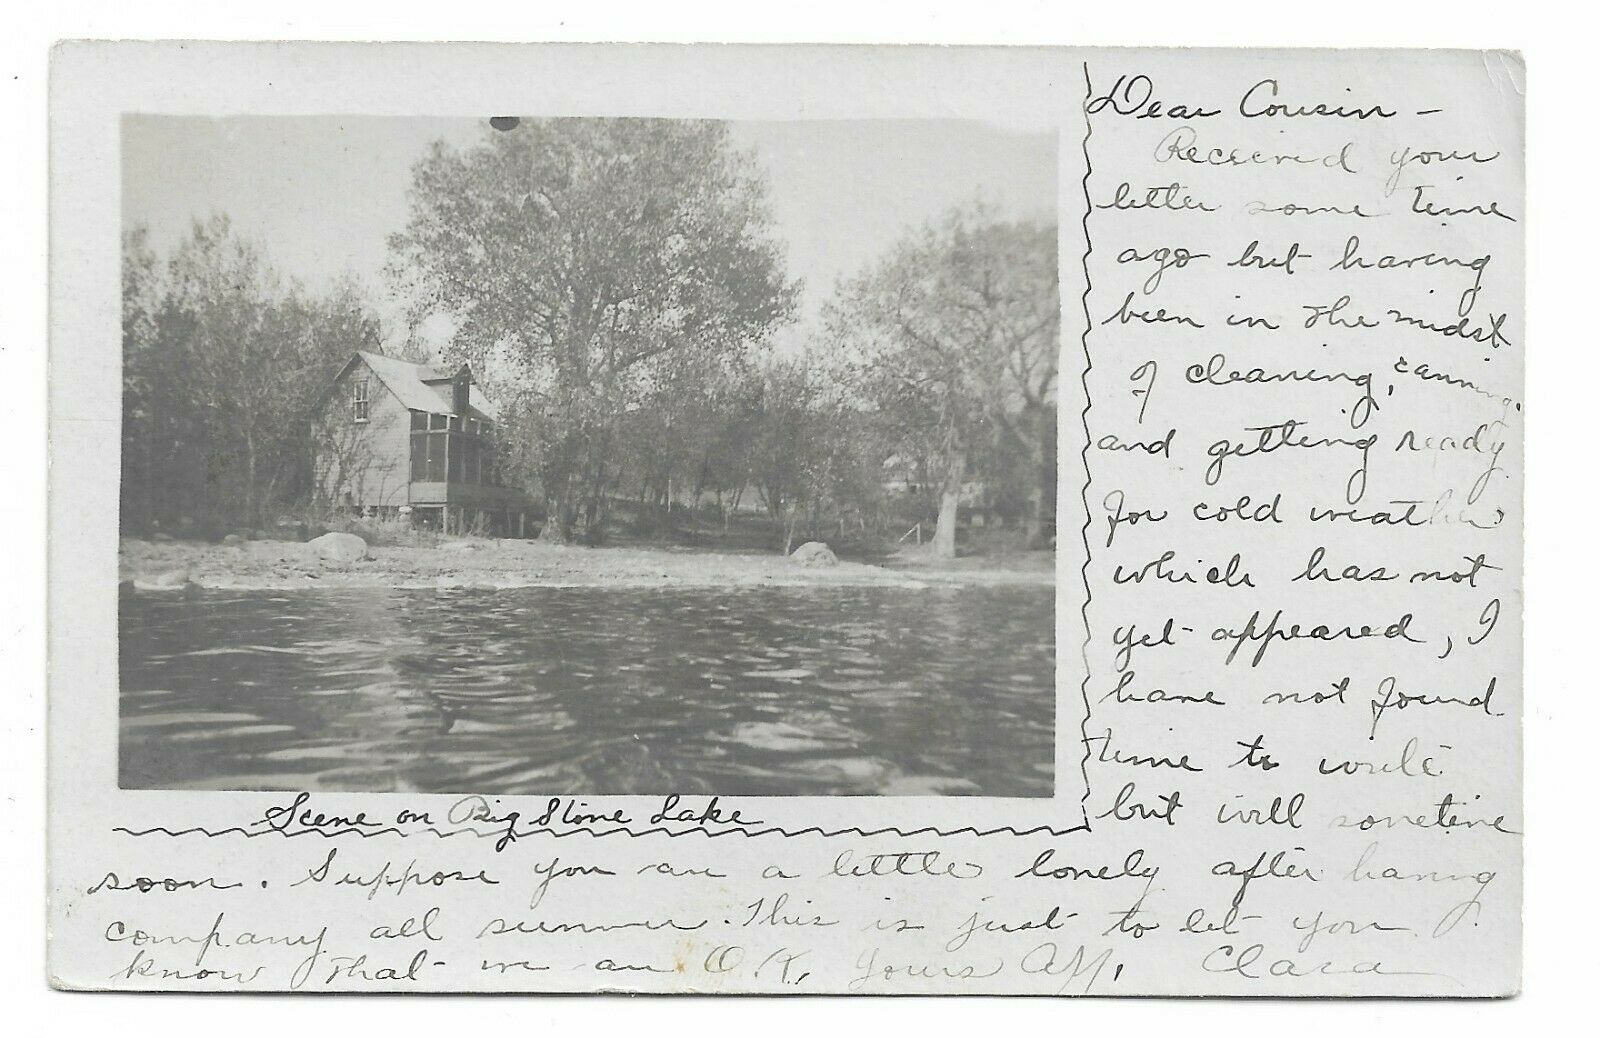 Dear Cousin -
Received your
letter some time
ago but having
been in the midst
of cleaning, canning,
and getting ready
for cold weather
which has not
yet appeared, I
have not found
time to write
but will sometime
Scene on Big Stone Lake
soon. Suppose you are a little lonely after having
company all summer. This is just to let you
know that we are O.K, Yours Aff, Clara